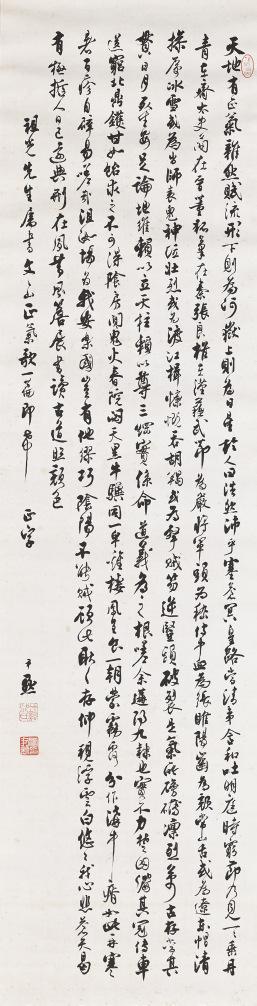 天地有正氣雜然賦流形下則為河嶽上則為日星於人曰浩然沛乎塞蒼冥皇路當清夷含和吐明庭時窮節乃見一一垂丹
青在齊太史簡在晉董狐筆在秦張良椎在漢蘇武節為嚴將軍頭為嵇侍中血為張睢陽齒為顏常山舌或為遼東帽清
操厲冰雪或為出師表鬼神泣壯烈或為渡江楫慷慨吞胡羯或為擊賊笏逆豎頭破裂是氣所磅礴凜烈萬古存當其
貫日月死生安足論地維賴以立天柱賴以尊三綱實係命道義為之根嗟余遘陽九隸也實不力楚囚纓其冠傳車
送窮北鼎鑊甘如飴求之不可得陰房闃鬼火春院閟天黑牛驥同一皁雞棲鳳凰食一朝蒙霧露分作溝中瘠如此再寒
暑百沴自辟易嗟哉沮洳場為我安樂國豈有他繆巧陰陽不能賊顧此耿耿存仰視浮雲白悠悠我心悲蒼天曷
有極哲人日已遠典刑在夙昔風簷展書讀古道照顏色
祖光先生屬書文山正氣歌一篇即希 正字
尹默